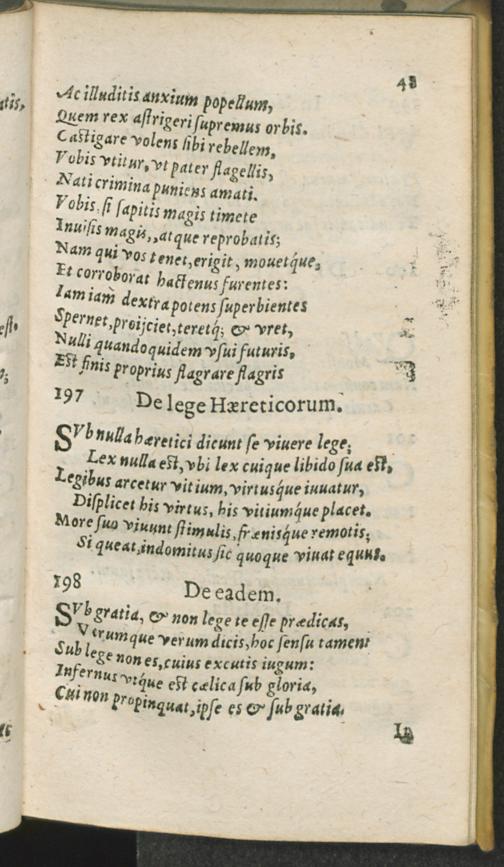 43
Ac illuditis anxium popellum,
Quem rex astrigeri supremus orbis.
Castigare volens sibi rebellem,
Vobis vtitur, vt pater flagellis,
Nati crimina puniens amati.
Vobis si sapitis magis timete
Inuisis magis, atque reprobatis;
Nam qui vos tenet, erigit, mouetq́ue,
Et corroborat hactenus furentes:
Iam iam dextra potens superbientes
Spernet, proijciet, teretq́; & vret,
Nulli quandoquidem vsui futuris,
Est finis proprius flagrare flagris
197 De lege Hæreticorum.
SVb nulla hæretici dicunt se viuere lege;
Lex nulla est, vbi lex cuique libido sua est,
Legibus arcetur vitium, virtusq́ue iuuatur,
Displicet his virtus, his vitiumq́ue placet.
More suo viuunt stimulis, frænisq́ue remotis;
Si queat, indomitus sic quoque viuat equus.
198 De eadem.
SVb gratia, & non lege te esse prædicas,
Verumque verum dicis, hoc sensu tamen:
Sub lege non es, cuius excutis iugum:
Infernus vtq́ue est cælica sub gloria,
Cui non propinquat, ipse es & sub gratia.
In